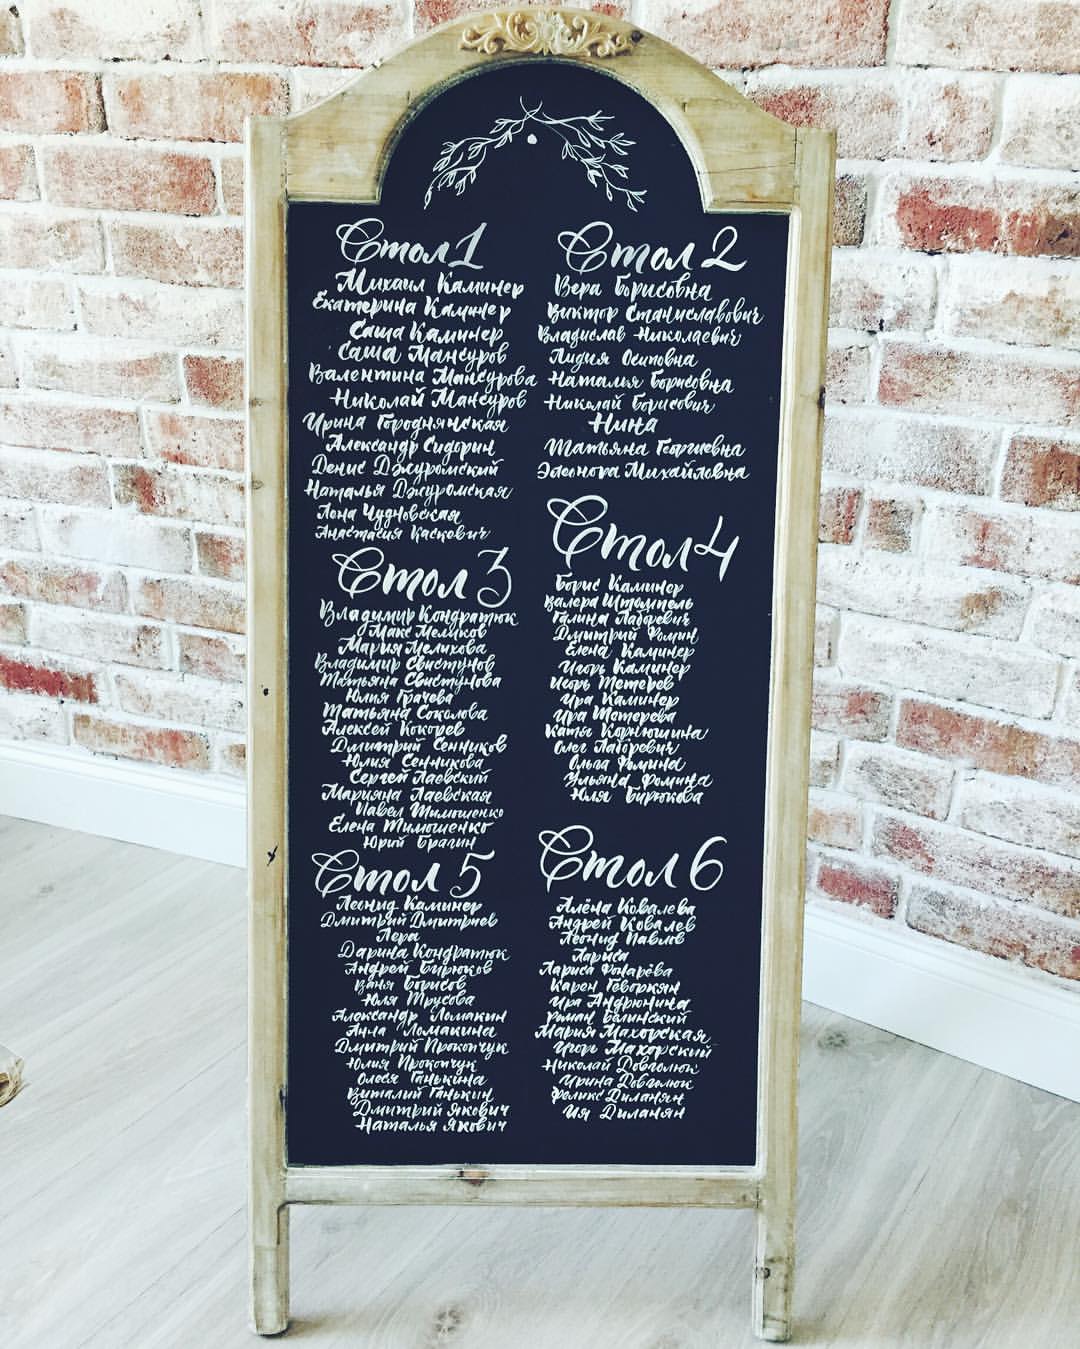 Стол 1
Михаил Каминер
Екатерина Каминер
Саша Каминер
Саша Мансуров
Валентина Мансурова
Николай Мансуров
Ирина Городнянская
Александр Сидорин
Денис Джуромский
Наталья Джуромская
Лона Чудновская
Анастасия Каскевич
Стол 2
Вера Борисовна
Виктор Станиславович
Владислав Николаевич
Лидия Осиповна
Наталья Борисовна
Николай Борисович
Нина
Татьяна Георгиевна
Элеонора Михайловна
Стол 3
Владимир Кондратюк
Макс Меликов
Мария Мелихова
Владимир Свистунов
Татьяна Свистунова
Юлия Грачева
Татьяна Соколова
Алексей Кокорев
Дмитрий Сенников
Юлия Сенникова
Сергей Лаевский
Марияна Лаевская
Павел Тимошенко
Елена Тимошенко
Юрий Брагин
Стол 4
Борис Каминер
Валера Штомпель
Галина Лаборевич
Дмитрий Фомин
Елена Каминер
Игорь Каминер
Игорь Тетерев
Ира Каминер
Ира Тетерева
Катя Корнюшина
Олег Лаборевич
Ольга Фомина
Ульяна Фомина
Юля Бирюкова
Стол 5
Леонид Каминер
Дмитрий Дмитриев
Лера
Дарина Кондратюк
Андрей Бирюков
Ваня Борисов
Юля Трусова
Александр Ломакин
Анна Ломакина
Дмитрий Прокопчук
Юлия Прокопчук
Олеся Ганькина
Виталий Ганькин
Дмитрий Якович
Наталья Якович
Стол 6
Алёна Ковалева
Андрей Ковалев
Леонид Павлов
Лариса
Лариса Фонарёва
Карен Геворкян
Ира Андрюнина
Роман Белинский
Мария Махорская
Игорь Махорский
Николай Довголюк
Ирина Довголюк
Феликс Диланян
Ия Диланян